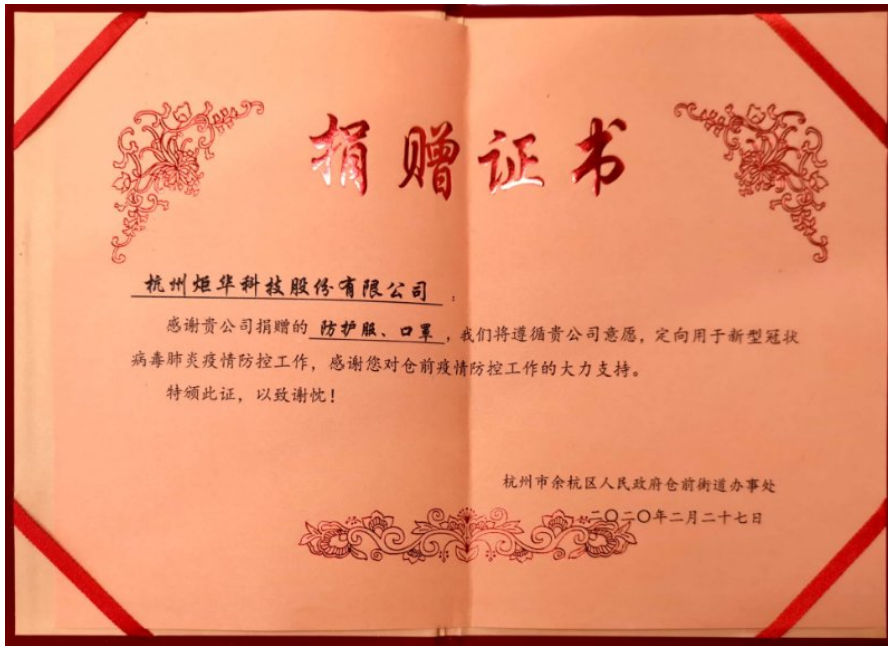 捐赠证书
杭州炬华科技股份有限公司：
感谢贵公司捐赠的 防护服、口罩，我们将遵循贵公司意愿，定向用于新型冠状
病毒肺炎疫情防控工作，感谢您对仓前疫情防控工作的大力支持。
特颁此证，以致谢忱！
杭州市余杭区人民政府仓前街道办事处
二〇二〇年二月二十七日